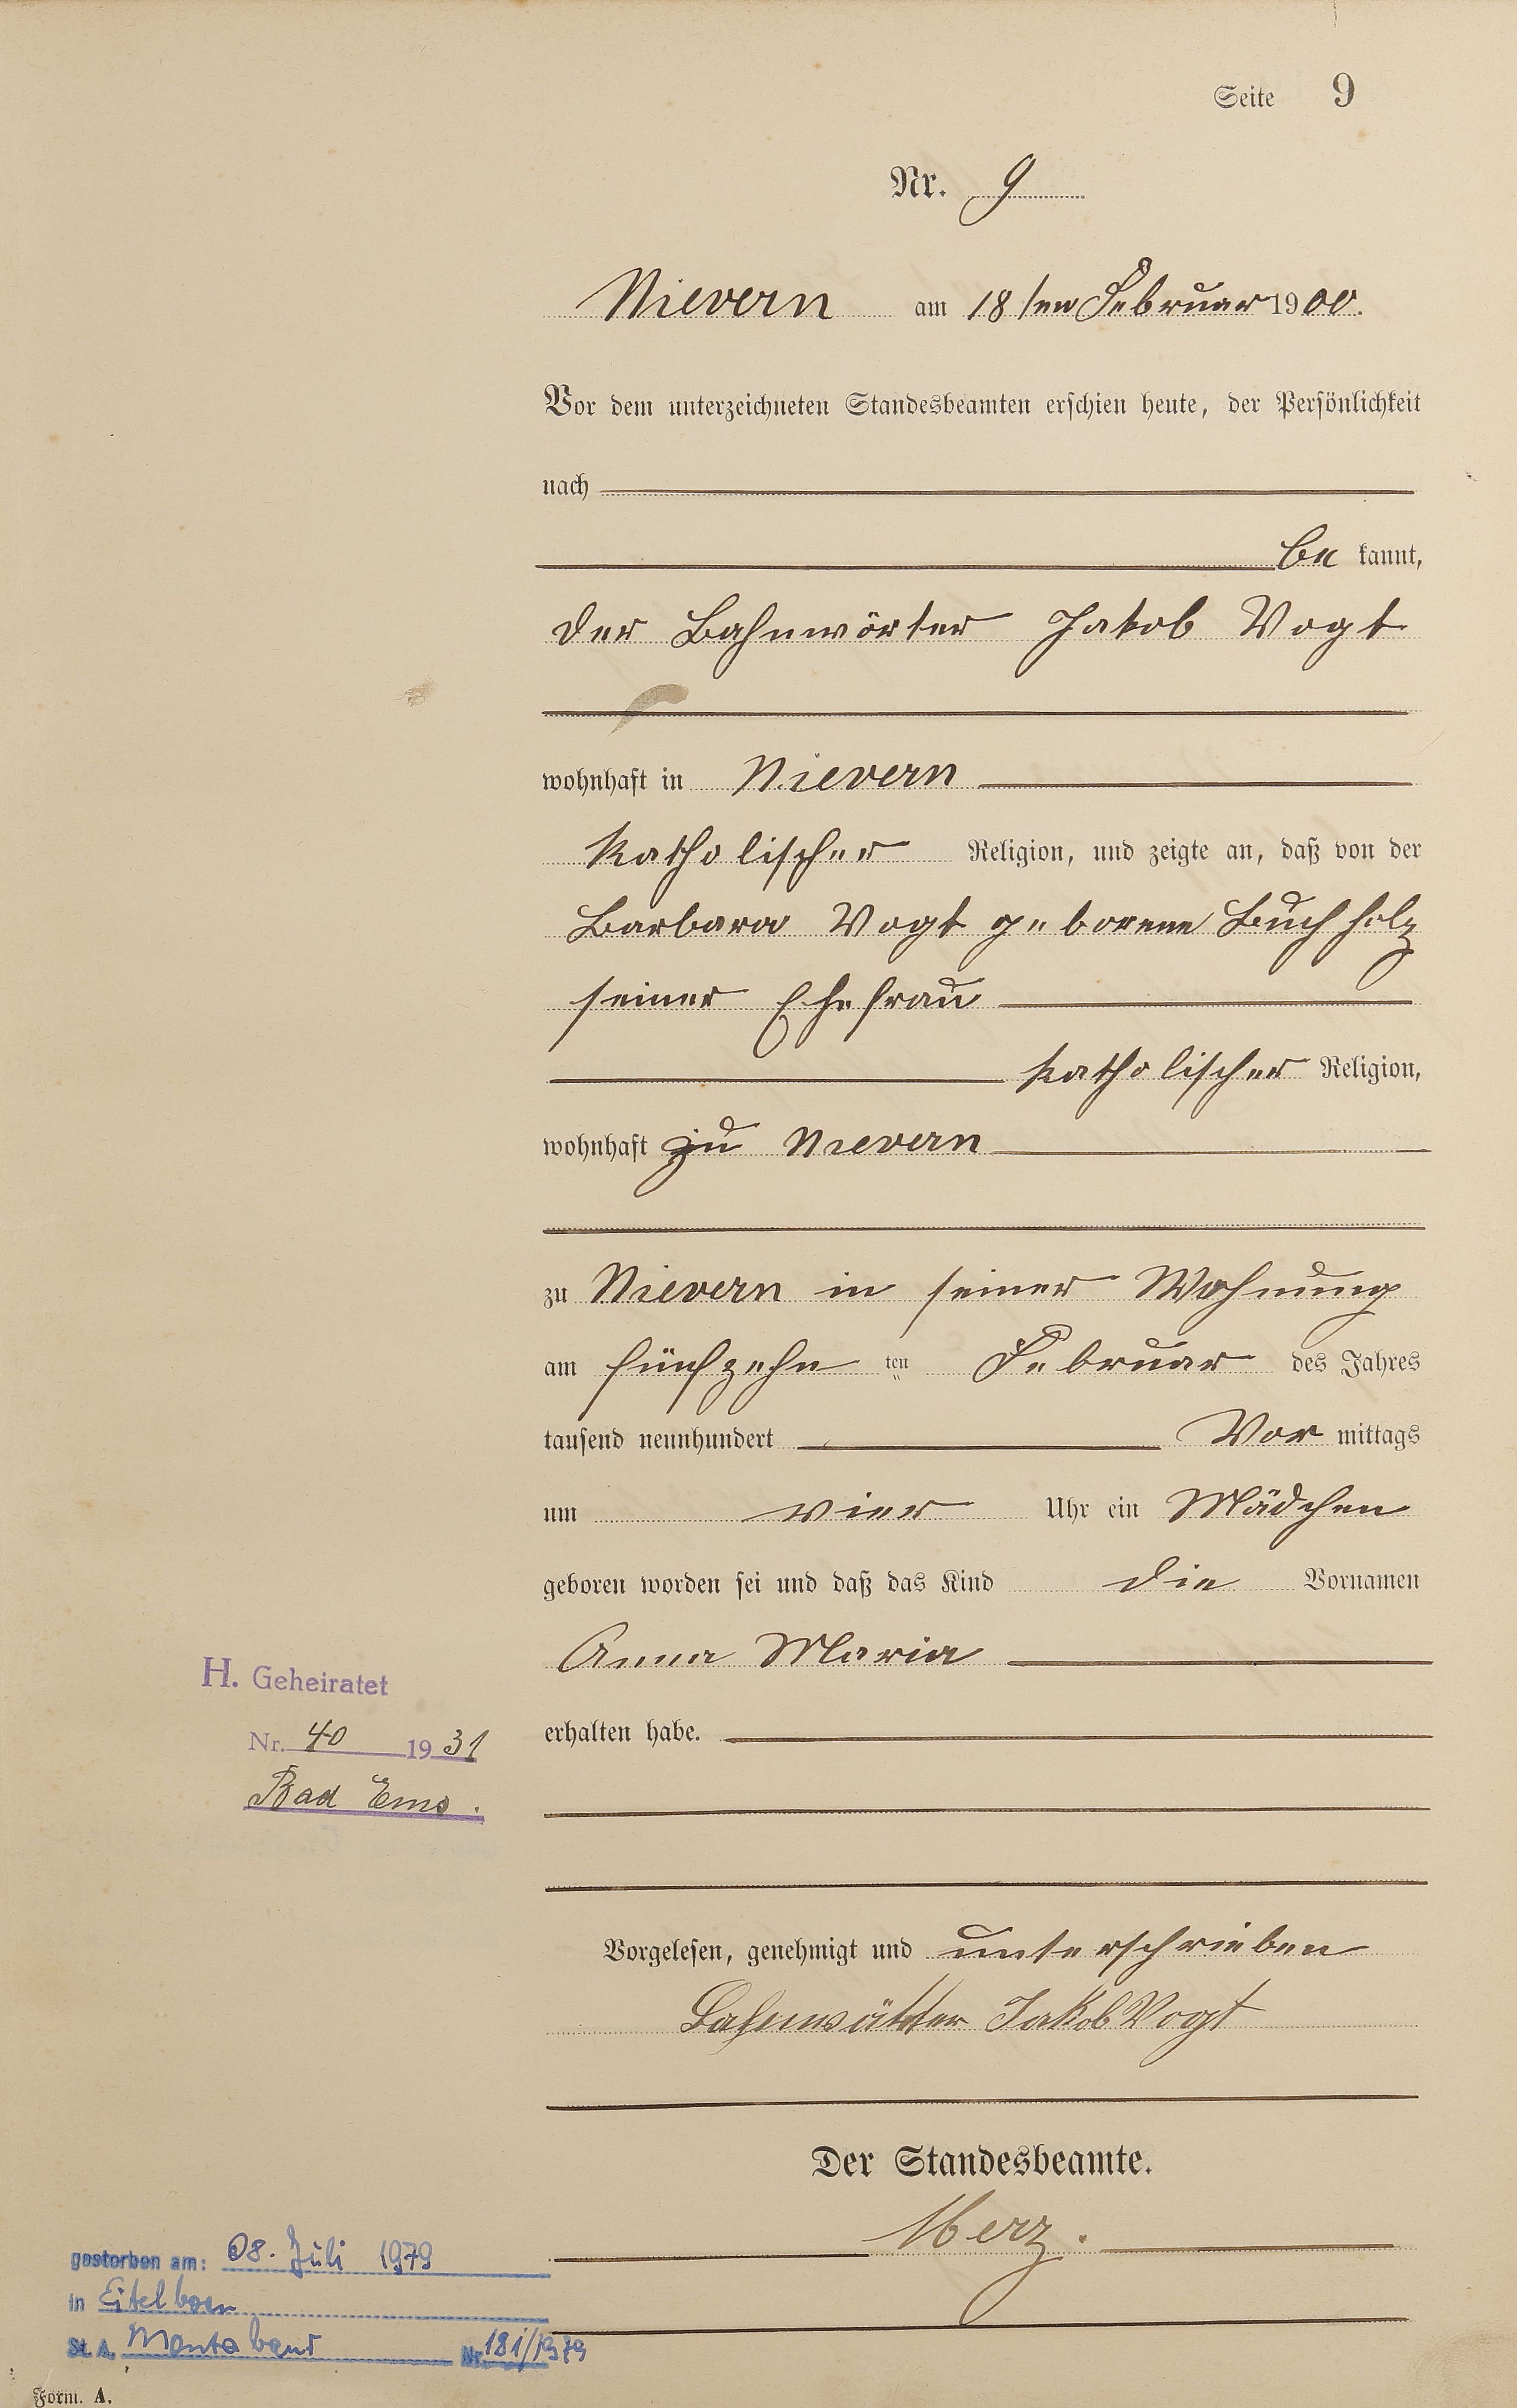 Seite 9
Nr. 9
Nievern am 18ten Februar 1900.
Vor dem unterzeichneten Standesbeamten erschien heute, der Persönlichkeit
nach
be kannt,
der Bahnwärter Jakob Vogt
wohnhaft in Nievern
katholischer Religion, und zeigte an, daß von der
Barbara Vogt geborene Buchholz
seiner Ehefrau
katholischer Religion,
wohnhaft zu Nievern
zu Nievern in seiner Wohnung
am fünfzehn ten Februar des Jahres
tausend neunhundert Vor mittags
um vier Uhr ein Mädchen
geboren worden sei und daß das Kind die Vornamen
Anna Maria
H. Geheiratet
Nr. 40 1931
Bad Ems.
erhalten habe.
Vorgelesen, genehmigt und unterschrieben
Jakob Vogt
Der Standesbeamte.
Merz.
gestorben am: 08. Juli 1979
in Eitelborn
St. A. Montabaur Nr. 181/1979
Form. A.